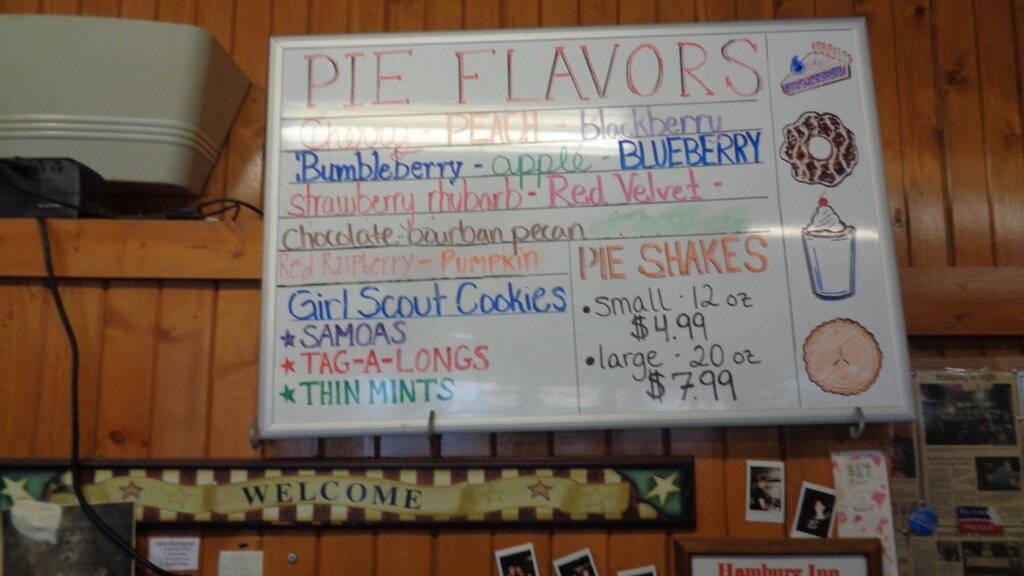 PIE FLAVORS
Cherry - PEACH - blackberry
Bumbleberry - apple - BLUEBERRY
strawberry rhubarb - Red Velvet -
Chocolate-bourban pecan
Red Raspberry - Pumpkin
Girl Scout Cookies
★ SAMOAS
★ TAG-A-LONGS
★ THIN MINTS
PIE SHAKES
• small - 12 oz
$4.99
• large - 20 oz
$7.99
WELCOME
Hamburg Inn